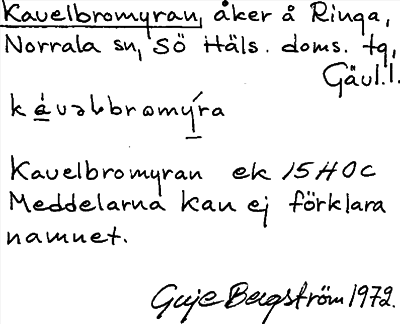 Kavelbromyran, åker å Ringa,
Norrala sn, Sö Häls. doms. tg,
Gävl.l.
Kavelbromyran ek 15H0c
Meddelarna kan ej förklara
namnet.
Bergström 1972.